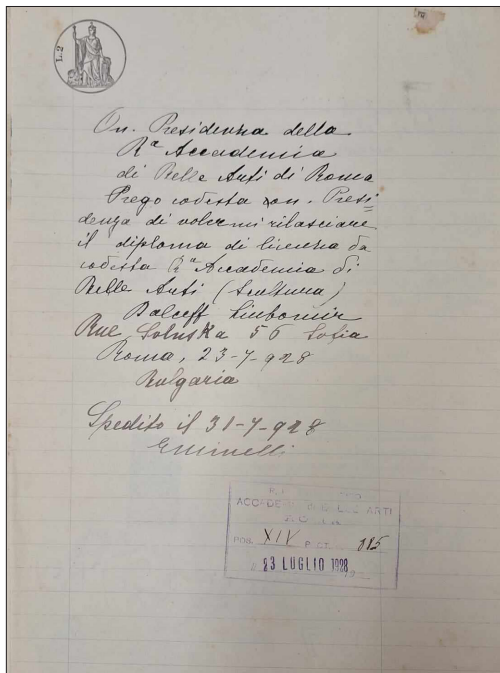 L.2
On. Presidenza della
Rª Accademia
di Belle Arti di Roma
Prego codesta on. Presi=
denza di volermi rilasciare
il diploma di licenza da
codesta Rª Accademia di
Belle Arti (scultura)
Dalceff Liubomir
Rue Solunska 56 Sofia
Roma, 23-7-928
Bulgaria
Spedito il 31-7-928
ACCADE ARTI
POS. XIV PROT. 815
23 LUGLIO 1928